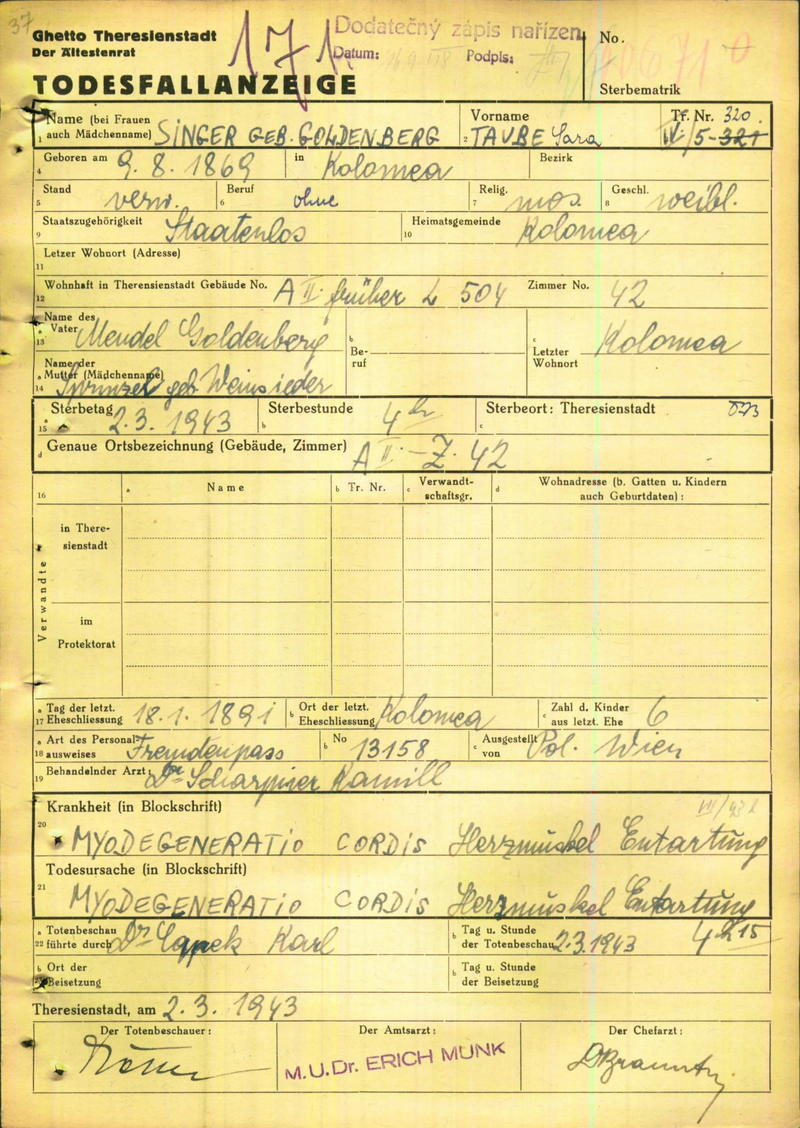 37
Ghetto Theresienstadt
Der Ältestenrat
171
Dodatečný zápis nařízen
Datum: Podpis:
No.
TODESFALLANZEIGE
Sterbematrik
Name (bei Frauen auch Mädchenname) SINGER GEB. GOLDENBERG
Vorname TAUBE Sara
Tr. Nr. 320. IV/5-321
1 2
4 Geboren am 9. 8. 1869 in Kolomea Bezirk
5 Stand verw. 6 Beruf ohne 7 Relig. mos. 8 Geschl. weibl.
9 Staatszugehörigkeit Staatenlos 10 Heimatsgemeinde Kolomea
11 Letzer Wohnort (Adresse)
12 Wohnhaft in Therensienstadt Gebäude No. A II. früher L 504 Zimmer No. 42
13 a Name des Vater Mendel Goldenberg b Be-ruf c Letzter Wohnort Kolomea
14 a Name der Mutter (Mädchenname) geb Weinsieder
15 a Sterbetag 2. 3. 1943 b Sterbestunde 4 h c Sterbeort: Theresienstadt
d Genaue Ortsbezeichnung (Gebäude, Zimmer) A II. - Z. 42
16 a Name b Tr. Nr. c Verwandt-schaftsgr. d Wohnadresse (b. Gatten u. Kindern auch Geburtdaten):
Verwandte
in There-
sienstadt
im
Protektorat
17 a Tag der letzt. Eheschliessung 18. 1. 1891 b Ort der letzt. Eheschliessung Kolomea c Zahl d. Kinder aus letzt. Ehe 6
18 a Art des Personal-ausweises Fremdenpass b No 13158 c Ausgestellt von Pol. Wien
19 Behandelnder Arzt: Dr Kamill
20 Krankheit (in Blockschrift)
MYODEGENERATIO CORDIS Herzmuskel Entartung
21 Todesursache (in Blockschrift)
MYODEGENERATIO CORDIS Herzmuskel Entartung
22 a Totenbeschau führte durch Dr Capek Karl b Tag u. Stunde der Totenbeschau 2. 3. 1943 4 h 15
b Ort der Beisetzung b Tag u. Stunde der Beisetzung
Theresienstadt, am 2. 3. 1943
Der Totenbeschauer: Der Amtsarzt: Der Chefarzt:
M.U.Dr. ERICH MUNK